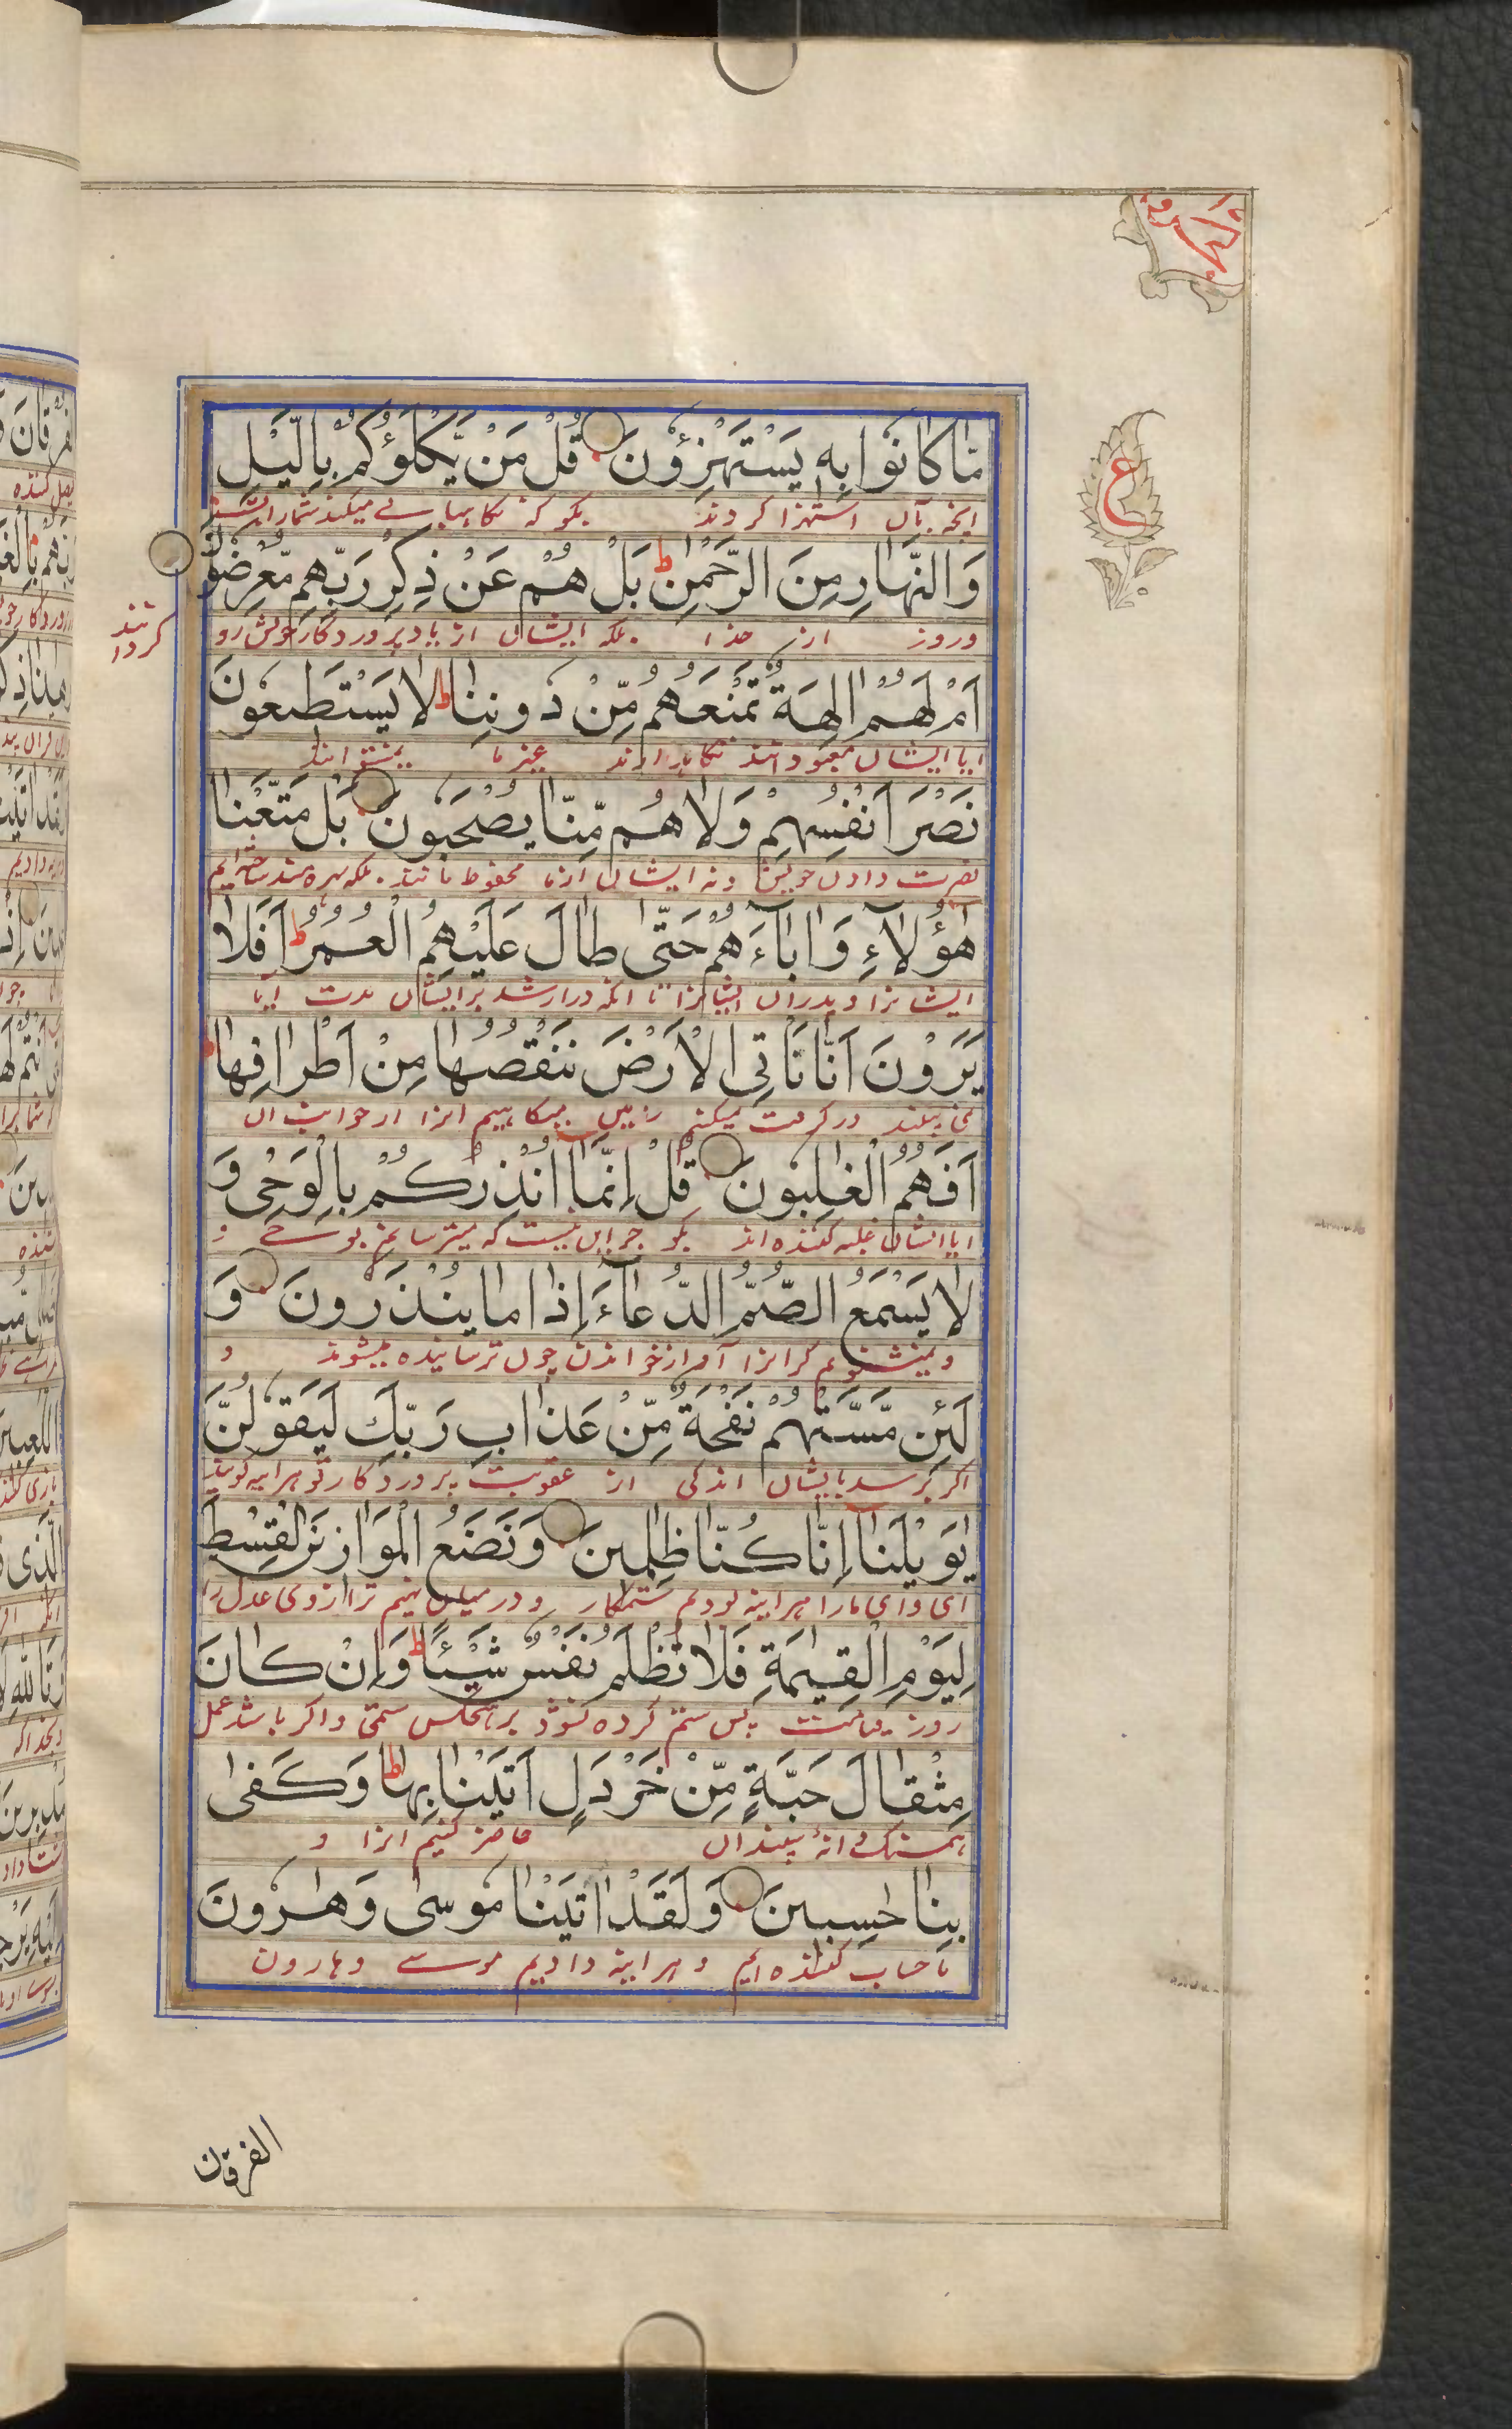 ع
مَّا كَانُوا بِهٖ يَسْتَهْزِؤُنَ قُلْ مَنْ يَّكْلَؤُكُمْ بِالَّيْلِ
انچه بآن استهزا کردند بگو که نگاهبانی میکند شمارا بشب
وَالنَّهَارِ مِنَ الرَّحْمٰنِ ط بَلْ هُمْ عَنْ ذِكْرِ رَبِّهِمْ مُّعْرِضُوْنَ
وروز از خدا بلکه ایشان از یاد پروردگار خویش رو
اَمْ لَهُمْ اٰلِهَةٌ تَمْنَعُهُمْ مِّنْ دُوْنِنَا ط لَا يَسْتَطِيْعُوْنَ
ایا ایشان معبودانند نگاه دارند غیر ما نمیتوانند
نَصْرَ اَنْفُسِهِمْ وَلَا هُمْ مِّنَّا يُصْحَبُوْنَ بَلْ مَتَّعْنَا
نصرت دادن خویش و نه ایشان از ما محفوظ مانند بلکه بهره مند ساخته ایم
هٰؤُلَآءِ وَاٰبَآءَهُمْ حَتّٰى طَالَ عَلَيْهِمُ الْعُمُرُ ط اَفَلَا
ایشانرا و پدران ایشانرا تا انکه دراز شد بر ایشان مدت ایا
يَرَوْنَ اَنَّا نَاْتِى الْاَرْضَ نَنْقُصُهَا مِنْ اَطْرَافِهَا
نمی بینند زمین میکاهیم انرا از جوانب ان
اَفَهُمُ الْغٰلِبُوْنَ قُلْ اِنَّمَا اُنْذِرُكُمْ بِالْوَحْىِ وَ
ایا ایشان غلبه کننده اند بگو جز این نیست که میترسانم بوحی و
لَا يَسْمَعُ الصُّمُّ الدُّعَآءَ اِذَا مَا يُنْذَرُوْنَ وَ
کرانرا آواز خواندن چون ترسانیده میشوند و
لَئِنْ مَّسَّتْهُمْ نَفْحَةٌ مِّنْ عَذَابِ رَبِّكَ لَيَقُوْلُنَّ
اگر برسد بایشان اندکی از عقوبت پروردگار تو هراینه گویند
يٰوَيْلَنَا اِنَّا كُنَّا ظٰلِمِيْنَ وَنَضَعُ الْمَوَازِيْنَ الْقِسْطَ
ای وای مارا هراینه بودیم ستمکار و در میان نهیم ترازوی عدل را
لِيَوْمِ الْقِيٰمَةِ فَلَا تُظْلَمُ نَفْسٌ شَيْئًا ط وَاِنْ كَانَ
روز قیامت پس ستم کرده نشود بر هیچکس ستمی و اگر باشد عمل
مِثْقَالَ حَبَّةٍ مِّنْ خَرْدَلٍ اَتَيْنَا بِهَا ط وَكَفٰى
همسنگ دانهٔ سپندان حاضر کنیم انرا و
بِنَا حٰسِبِيْنَ وَلَقَدْ اٰتَيْنَا مُوْسٰى وَهٰرُوْنَ
ما حساب کننده ایم و هراینه دادیم موسی و هارون
الفرقان